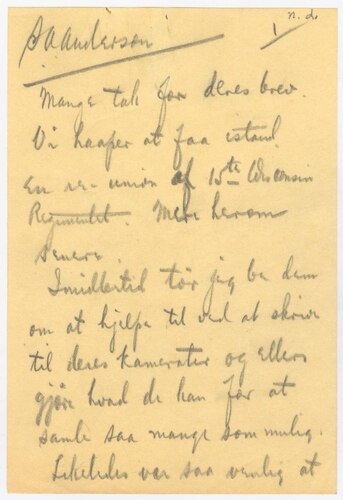 n.d.
1
S A Anderson
Mange tak for deres brev.
Vi haaper at faa istand
En re-union af 15te Wisconsin
Regimentet. Mere herom
senere.
Imidlertid tør jeg be dem
om at hjelpe til ved at skrive
til deres kamerater og Ellers
gjøre hvad de kan for at
samle saa mange som mulig.
Likeledes vær saa venlig at